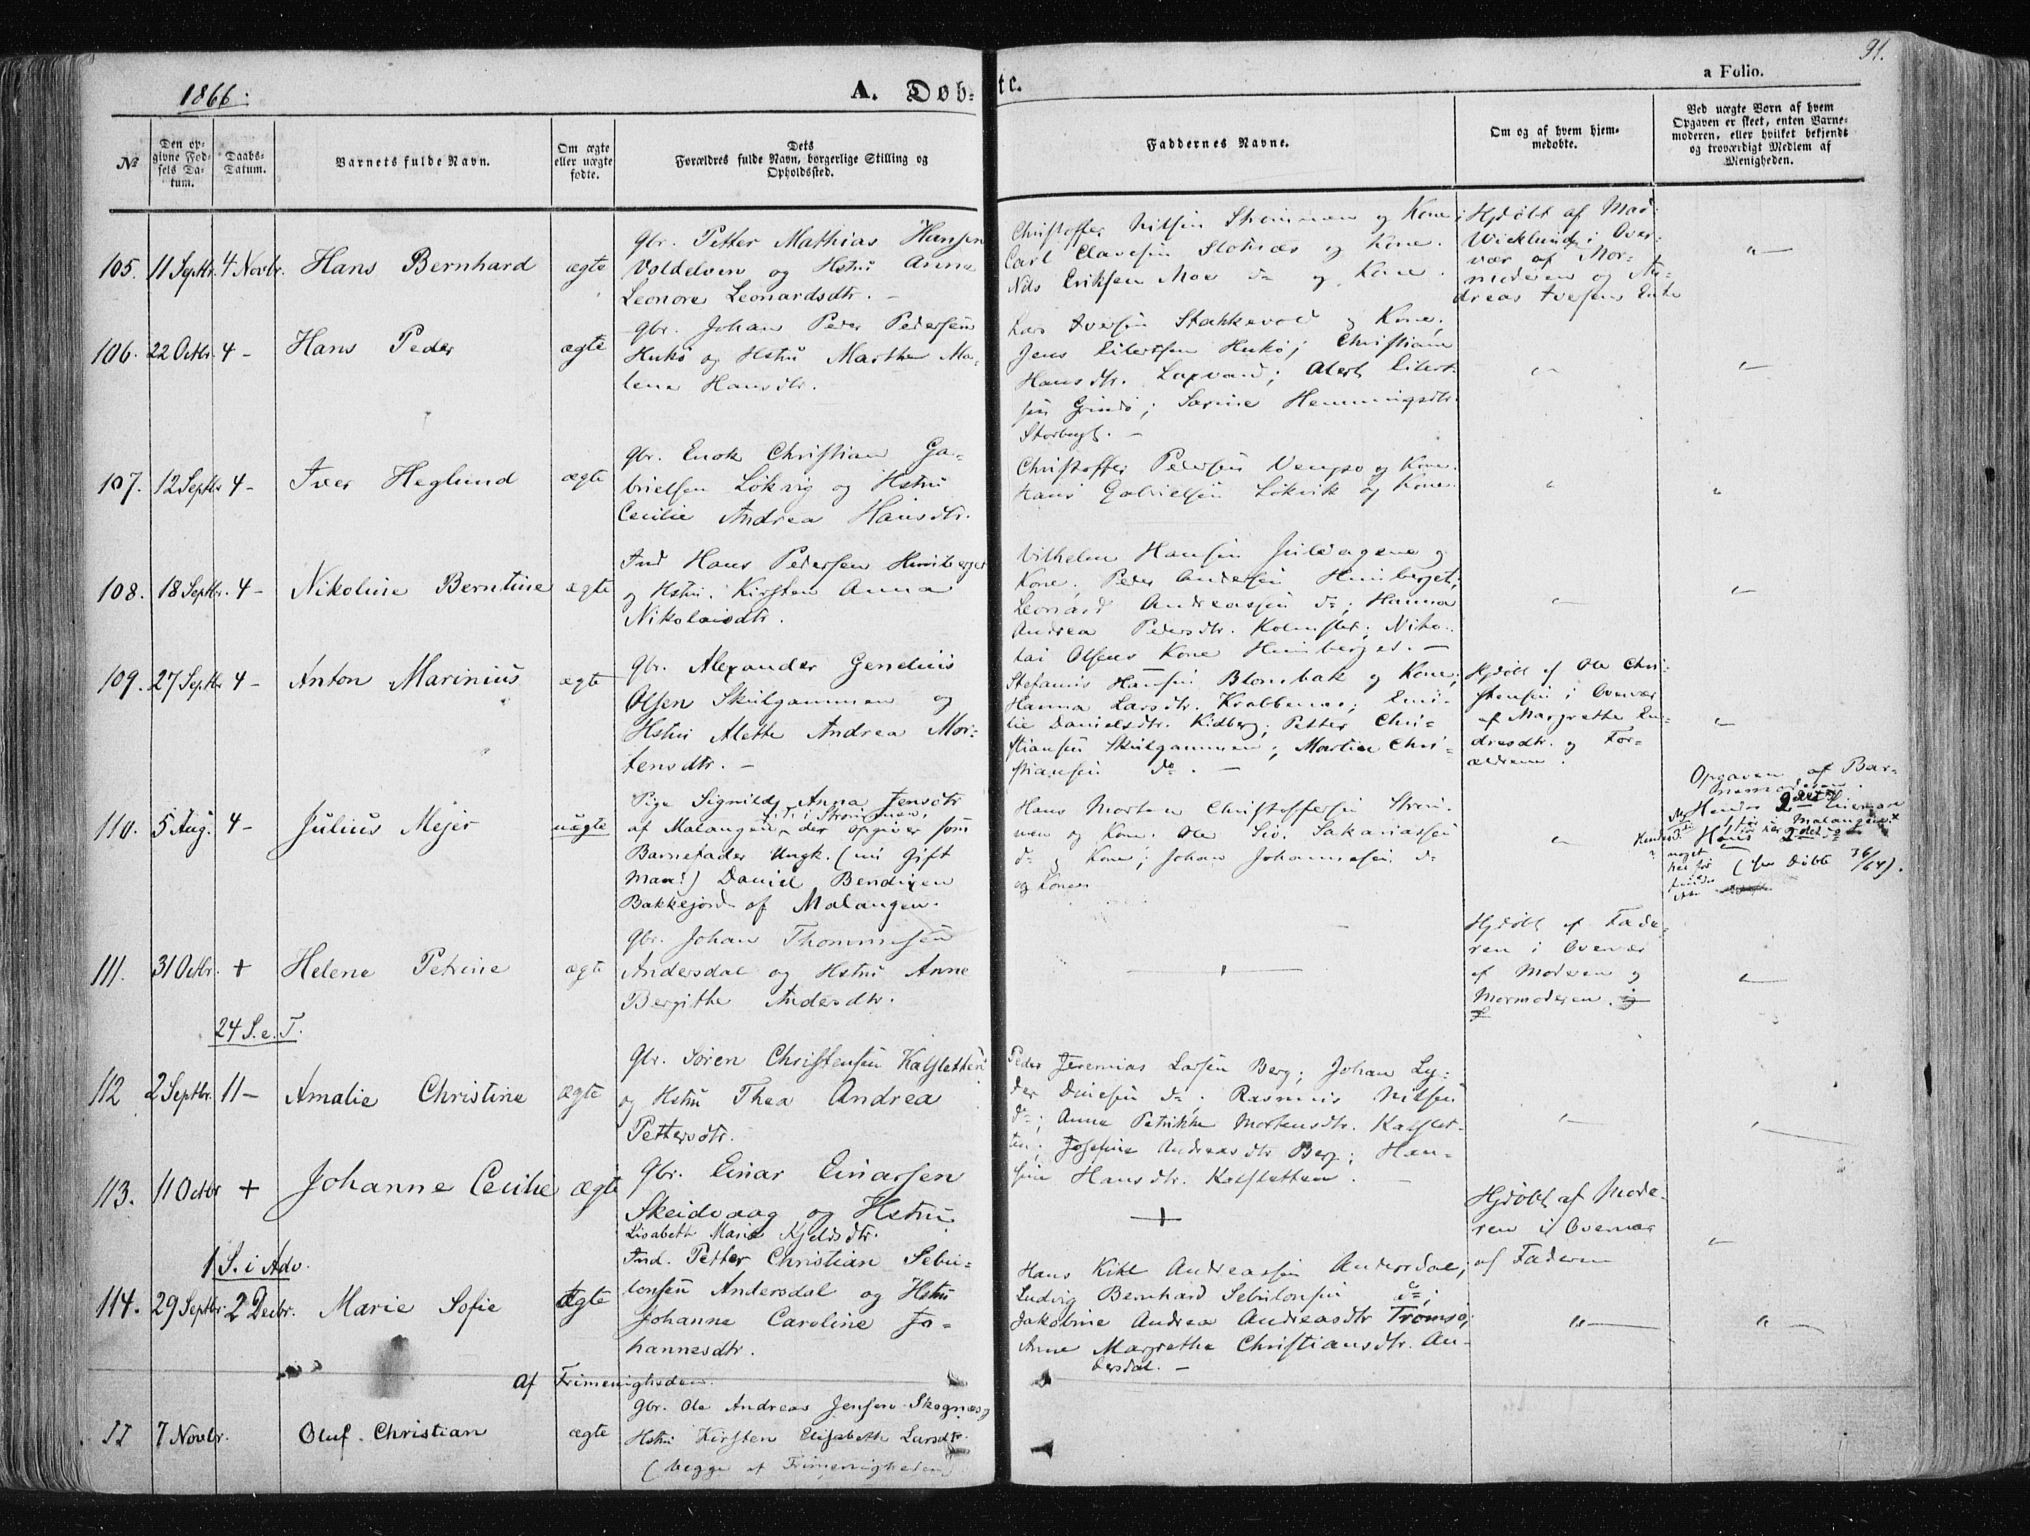 1866.
A. Døbte.
91.
a Folio.
No
Den opgivne Fødsels Datum.
Daabs-Datum.
Barnets fulde Navn.
Om ægte eller uægte fødte.
Dets Forældres fulde Navn, borgerlige Stilling og Opholdssted.
Faddernes Navne.
Om og af hvem hjemmedøbte.
Ved uægte Børn af hvem Opgaven er skeet, enten Barnemoderen, eller hvilket bekjendt og troværdigt Medlem af Menigheden.
105. 11 Septbr. 4 Novbr. Hans Bernhard ægte
Gbr. Petter Mathias Hansen
Voldelven og Hstru Anna
Leonore Leonardsdtr. -
Christoffer Nilsen og Kone;
Carl og Kone.
Nils Eriksen Moe do og Kone.
Hjdøbt af Mad.
Wicklund i Over-
vær af Mor-
moderen og An-
dreas Iversens Enke
106. 22 Octbr. 4 - Hans Peder ægte
Gbr. Johan Peder Pedersen
og Hstru Marthe Ma-
lena Hansdtr.
Lars Iversen Stakkevold og Kone;
Jens Eilertsen; Christiane
Hansdtr. Laxvand; Eilert-
sen Grindø; Hemmingsdtr.
107. 12 Septbr 4 - Iver Heglund ægte
Gbr. Enok Christian Ga-
brielsen Løkvig og Hstru
Cecilie Andrea Hansdtr.
Christoffer Pedersen Vengsø og Kone.
Hans Gabrielsen Løkvik og Kone
108. 18 Septbr. 4 - Nikoline Berntine ægte
Ind Hans Pedersen
og Hstru. Kirsten Anna
Nikolaisdtr.
Vilhelm Hansen og
Kone; Peder Andersen
Leonard Andreassen do; Hanna
Andrea Pedersdtr. Niko-
lai Olsens Kone -
109. 27 Septbr 4 - Anton Marinius ægte
Gbr. Alexander Genelius
Olsen Skulgammen og
Hstru Alette Andrea Mor-
tensdtr. -
Hansen og Kone;
Hanna Larsdtr. Krabbenes; Emi-
lie Danielsdtr. Kidberg; Petter Chri-
stiansen Skulgammen; Martin Chri-
stiansen do. -
Hjdøbt af Ole Chri-
stensen i Overvær
af Margrethe En-
dresdtr. og For-
ældrene.
110. 5 Aug. 4 - Julius Mejer uægte
Pige Signild Anna Jensdtr
af Malangen, der opgiver som
Barnefader Ungk. (nu gift
Man!) Daniel Bendixen
Bakkejord af Malangen.
Hans Morten Christoffersen
og Kone; Ole Sakariassen
do og Kone; Johan Johannesen do
og Kone
Opgaven af Bar-
nemoderen.
Hendes 2det
Malangen.
(fra Døbte 36/64).
111. 31 Octbr. + Helene Petrine ægte
Gbr. Johan Thommesen
Andersdal og Hstru Anne
Bergithe Andersdtr.
Hjdøbt af Fade-
ren i Overvær
af Moderen og
Mormoderen.
24 S. e. T.
112 2 Septbr. 11 - Amalie Christine ægte
Gbr. Søren Christensen Kalsletten
og Hstru Thea Andrea
Pettersdtr.
Peder Jeremias Larsen Berg; Johan Ly-
der do; Rasmus Nilsen
do; Anne Petrikke Mortensdtr. Kalslet-
ten; Josefine Andreasdtr Berg; Han-
sine Hansdtr. Kalsletten. -
113. 11 Octbr + Johanne Cecilie ægte
Gbr. Einar Einarsen
Skeidvaag og Hstru
Lisabeth Maria Kjeldsdtr.
+
Hjdøbt af Mode-
ren i Overvær
af Faderen
1 S. i Adv.
114. 29 Septbr. 2 Decbr. Marie Sofie ægte
Ind. Petter Christian Sebu-
lonsen Andersdal og Hstru
Johanne Caroline Jo-
hannesdtr.
Hans Kihl Andreassen Andersdal;
Ludvig Bernhard Sebulonsen do;
Jakobine Andrea Andreasdtr Tromsø;
Anne Margrethe Christiansdtr. An-
dersdal. -
Af Frimenigheden.
II 7 Novbr. Oluf Christian ægte
Gbr. Ole Andreas Jensen Skognæs og
Hstru Kirsten Elisabeth Larsdtr.
(begge af Frimenigheden)